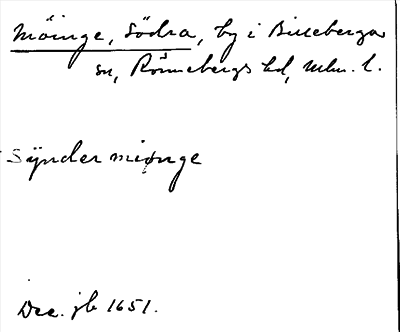 Möinge, Södra, by i Billeberga
sn, Rönnebergs hd, Mlm. l.
Synder miønge
Dec. jb 1651.